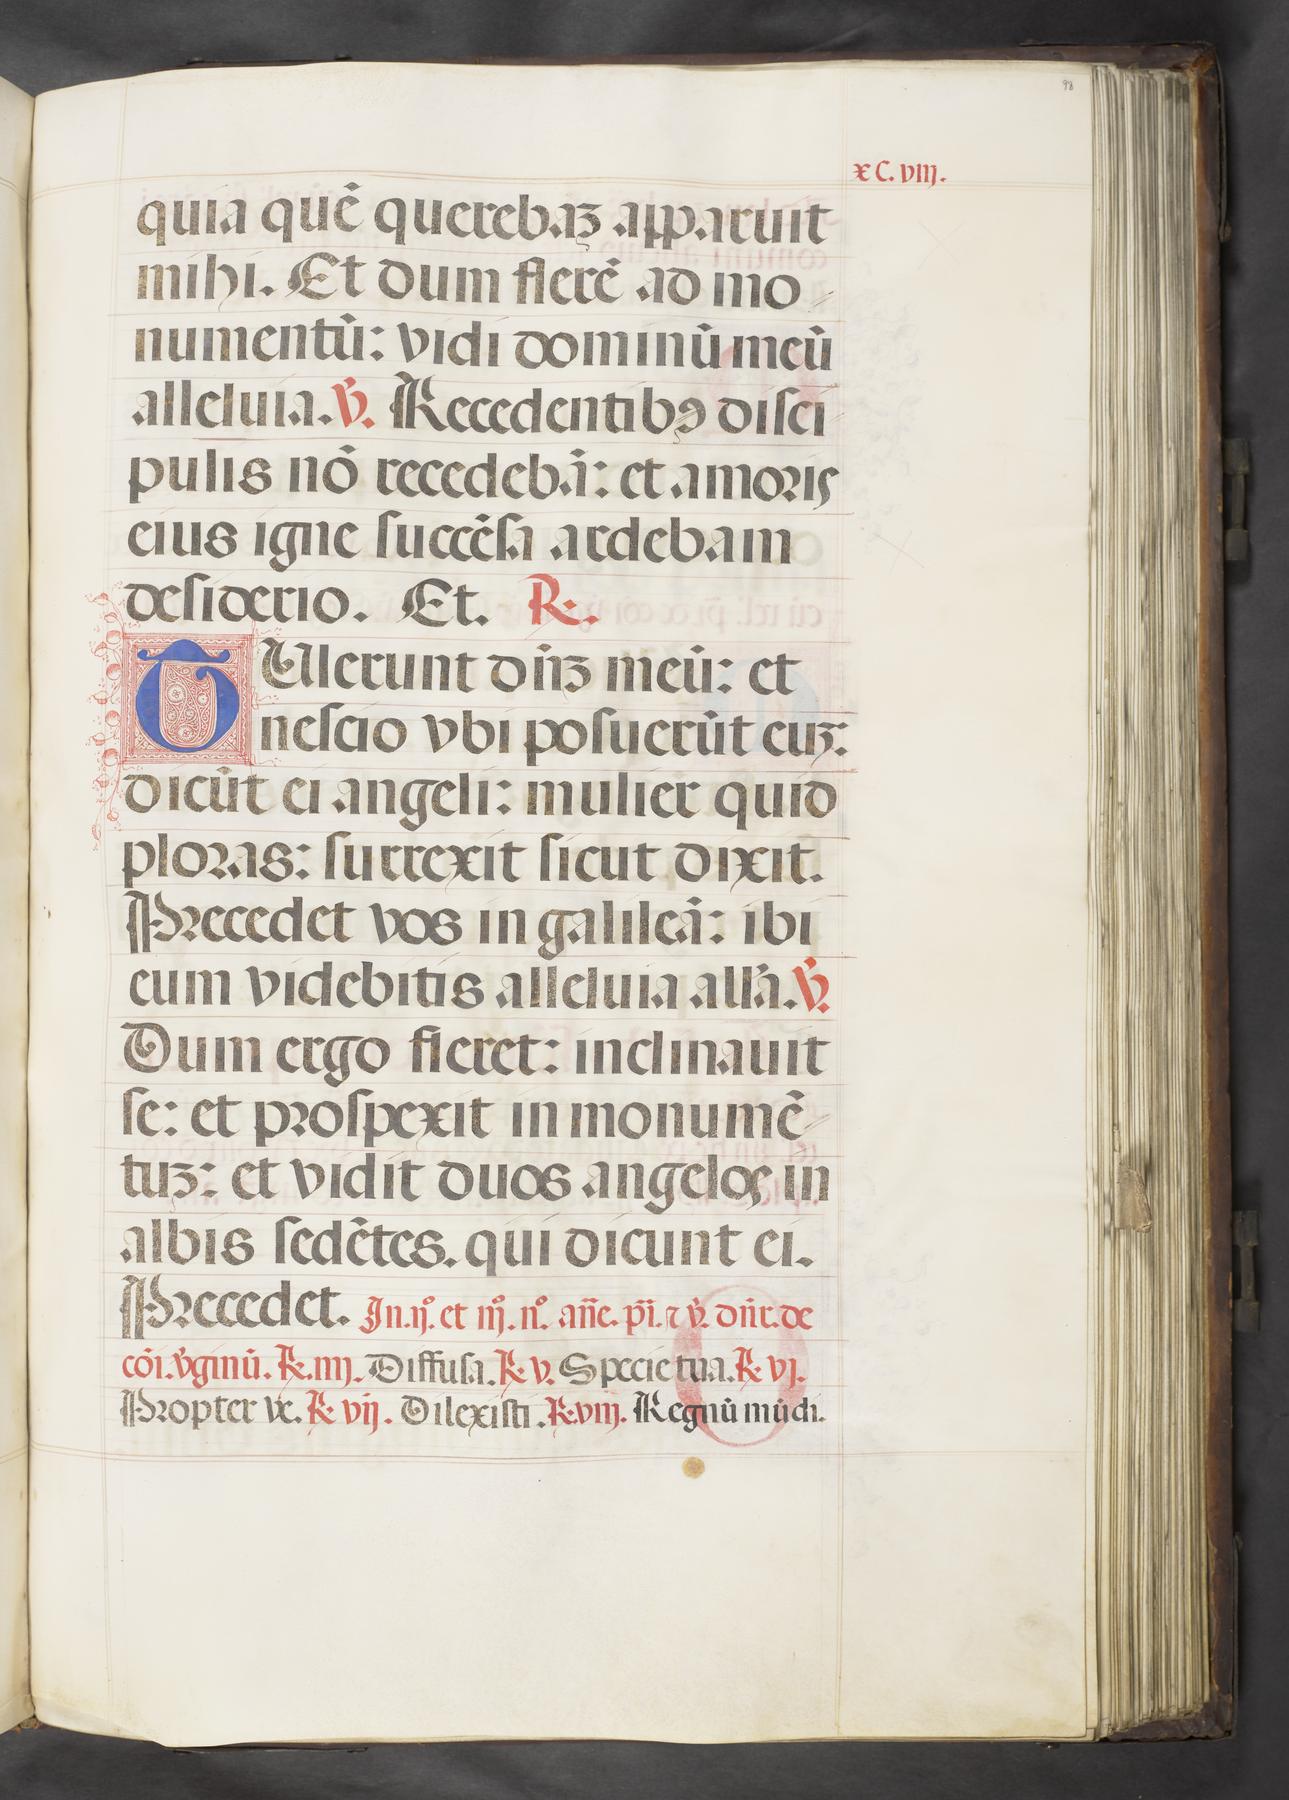 98
xC.viij.
quia quē querebaʒ apparuit
mihi. Et dum flerē ad mo
numentū: vidi dominū meū
alleluia. ℣. Recedentibꝯ disci
pulis nō recedebā: et amoris
eius igne succēsa ardebam
desiderio. Et. R.
TUlerunt dn̄ʒ meū: et
nescio vbi posuerūt euʒ:
dicūt ei angeli: mulier quid
ploras: surrexit sicut dixit.
Precedet vos in galileā: ibi
eum videbitis alleluia all'a. ℣.
Dum ergo fleret: inclinauit
se: et prospexit in monumē
tuʒ: et vidit duos angelos in
albis sedētes. qui dicunt ei.
Precedet. In .ij.º et iij.º nº. an̄e. p̄i. ⁊ ℣. dn̄r. de
cōi. v̓ginū. ℟. iiij. Diffusa. ℟. v. Specie tua. ℟. vj.
Propter ve. ℟. vij. Dilexisti. ℟. viij. Regnū mūdi.